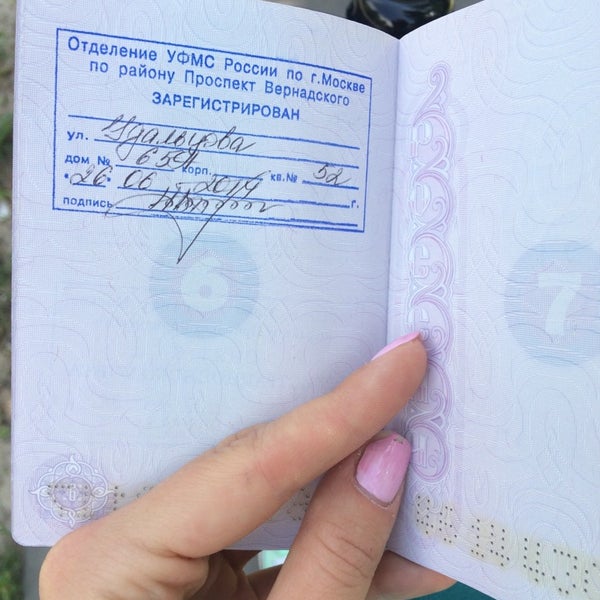 Отделение УФМС России по г.Москве
по району Проспект Вернадского
ЗАРЕГИСТРИРОВАН
ул. Удальцова
дом № 65А корп. кв.№ 52
26 06 2014 г.
подпись
6
7